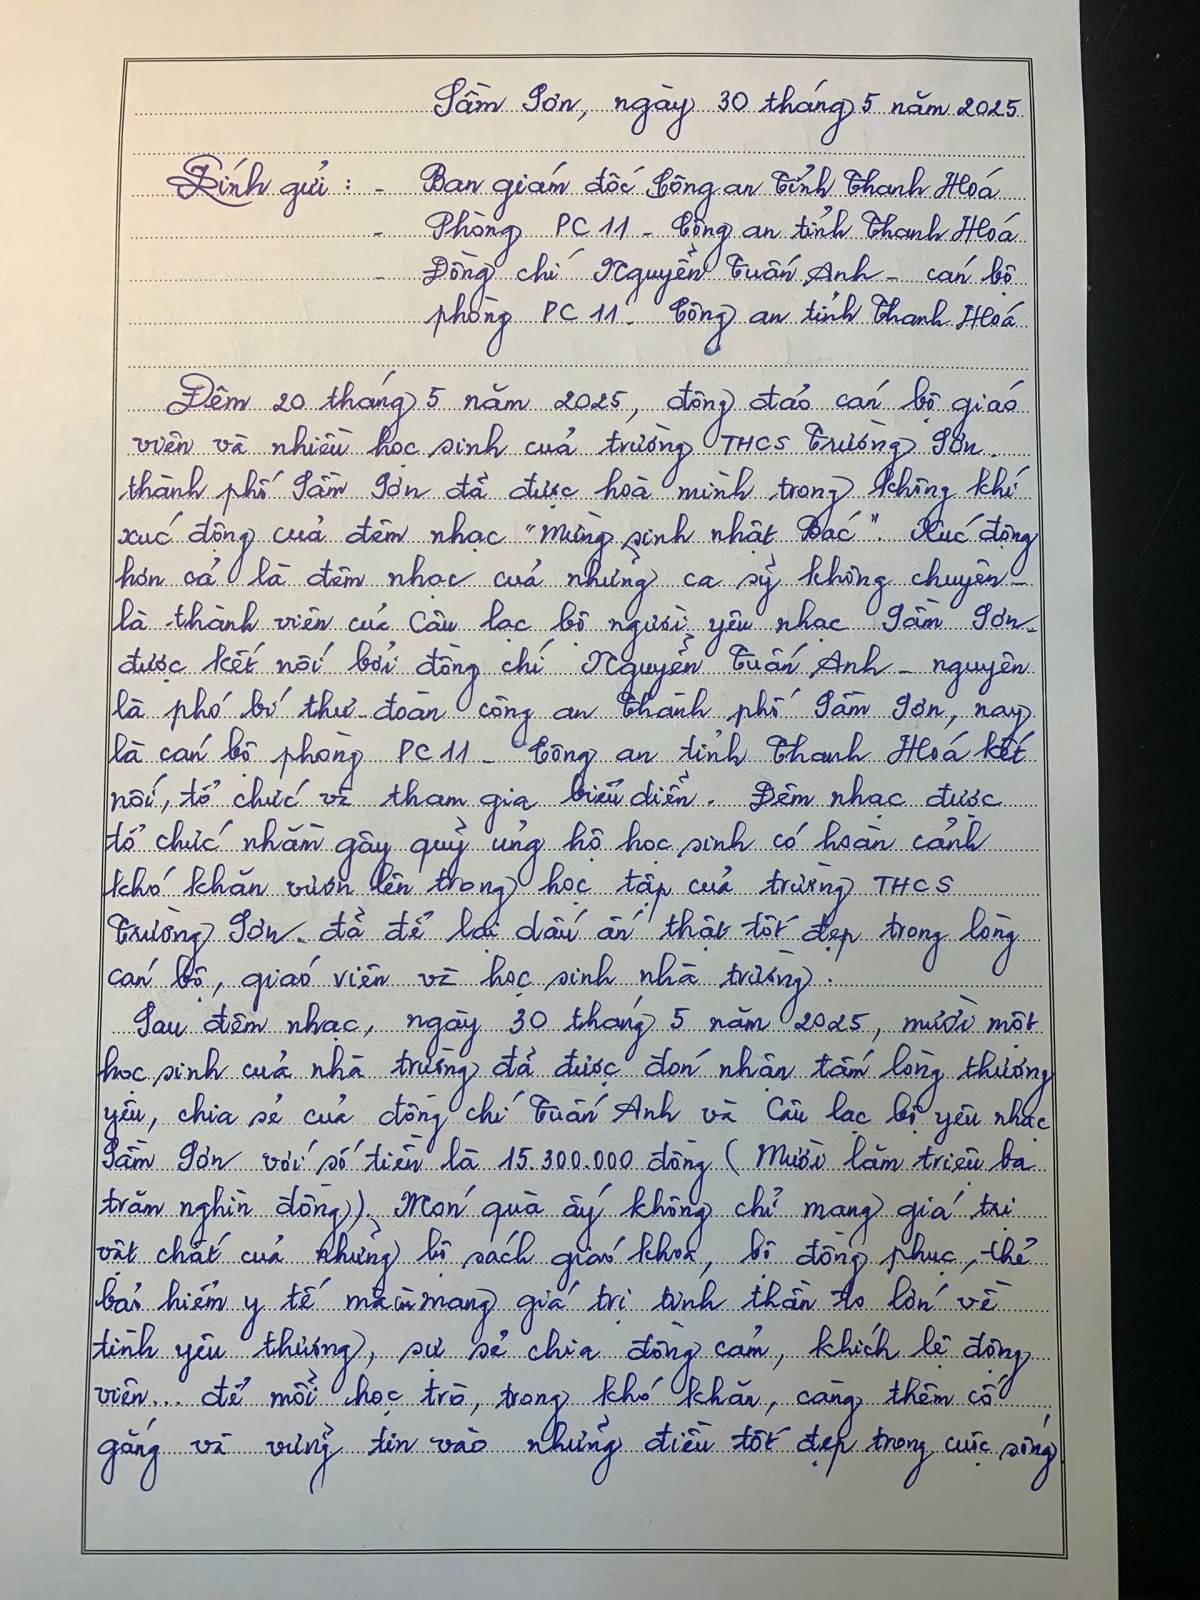 Sầm Sơn, ngày 30 tháng 5 năm 2025
Kính gửi : - Ban giám đốc Công an Tỉnh Thanh Hoá
- Phòng PC 11 - Công an tỉnh Thanh Hoá
- Đồng chí Nguyễn Tuấn Anh - cán bộ
phòng PC 11 - Công an tỉnh Thanh Hoá
Đêm 20 tháng 5 năm 2025, đông đảo cán bộ giáo
viên và nhiều học sinh của trường THCS Trường Sơn -
thành phố Sầm Sơn đã được hoà mình trong không khí
xúc động của đêm nhạc "Mừng sinh nhật Bác". Xúc động
hơn cả là đêm nhạc của những ca sỹ không chuyên -
là thành viên của Câu lạc bộ người yêu nhạc Sầm Sơn -
được kết nối bởi đồng chí Nguyễn Tuấn Anh - nguyên
là phó bí thư đoàn công an Thành phố Sầm Sơn, nay
là cán bộ phòng PC 11 - Công an tỉnh Thanh Hoá kết
nối, tổ chức và tham gia biểu diễn. Đêm nhạc được
tổ chức nhằm gây quỹ ủng hộ học sinh có hoàn cảnh
khó khăn vươn lên trong học tập của trường THCS
Trường Sơn đã để lại dấu ấn thật tốt đẹp trong lòng
cán bộ, giáo viên và học sinh nhà trường.
Sau đêm nhạc, ngày 30 tháng 5 năm 2025, mười một
học sinh của nhà trường đã được đón nhận tấm lòng thương
yêu, chia sẻ của đồng chí Tuấn Anh và Câu lạc bộ yêu nhạc
Sầm Sơn với số tiền là 15.300.000 đồng (Mười lăm triệu ba
trăm nghìn đồng). Món quà ấy không chỉ mang giá trị
vật chất của những bộ sách giáo khoa, bộ đồng phục, thẻ
bảo hiểm y tế mà còn mang giá trị tinh thần to lớn về
tình yêu thương, sự sẻ chia đồng cảm, khích lệ động
viên... để mỗi học trò, trong khó khăn, càng thêm cố
gắng và vững tin vào những điều tốt đẹp trong cuộc sống